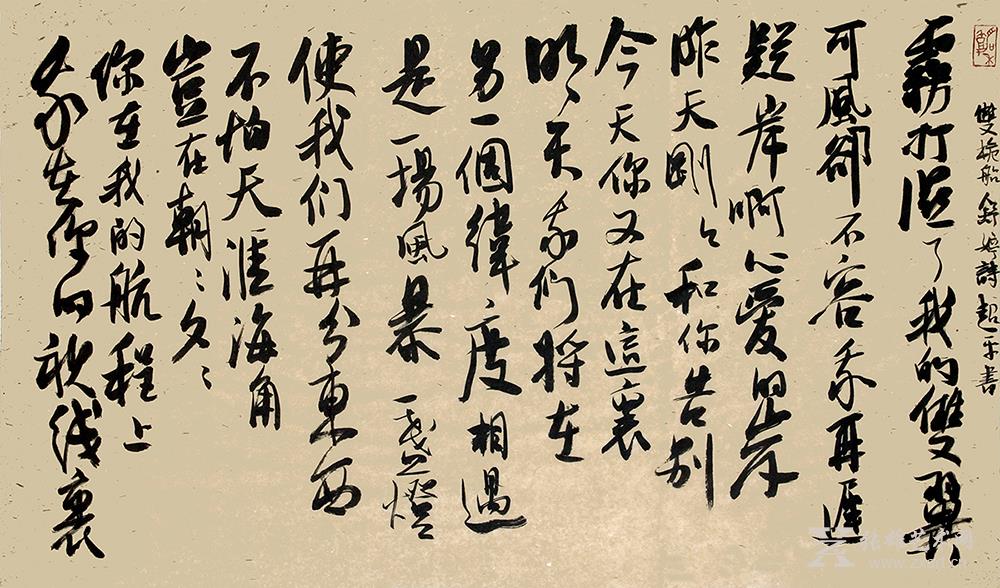 雙桅船舒婷詩超平書
霧打濕了我的雙翼
可風卻不容我再遲
疑岸啊心愛的岸
昨天剛々和你告别
今天你又在這裏
明天我們將在
另一個緯度相遇
是一場風暴一盞燈
使我们再分東西
不怕天涯海角
豈在朝々夕々
你在我的航程上
我在你的視綫裏
张雄艺术网
www.zxart.cn